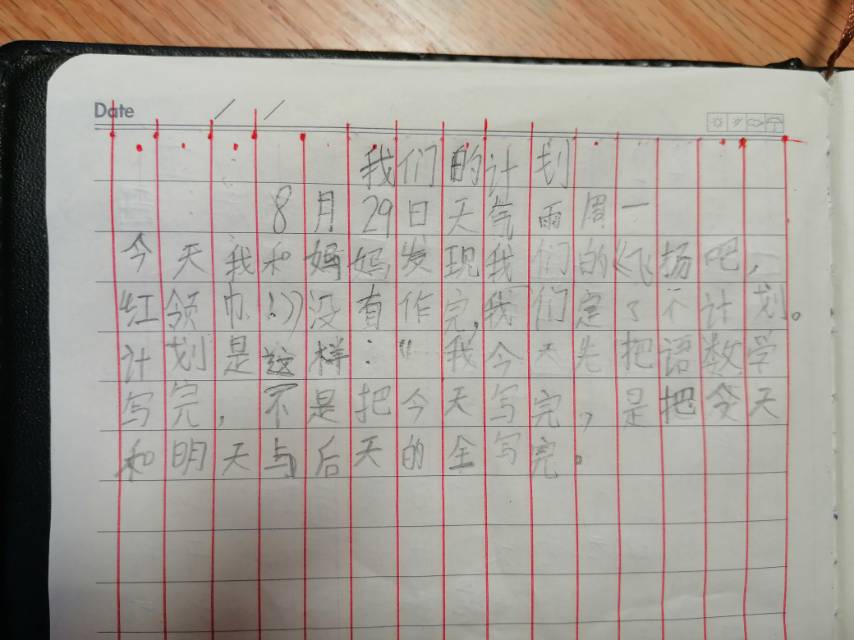 Date / /
我们的计划
8月29日天气雨周一
今天我和妈妈发现我们的《飞扬吧,
红领巾!》没有作完,我们定了个计划。
计划是这样:“我今天先把语数学
写完,不是把今天写完,是把今天
和明天与后天的全写完。